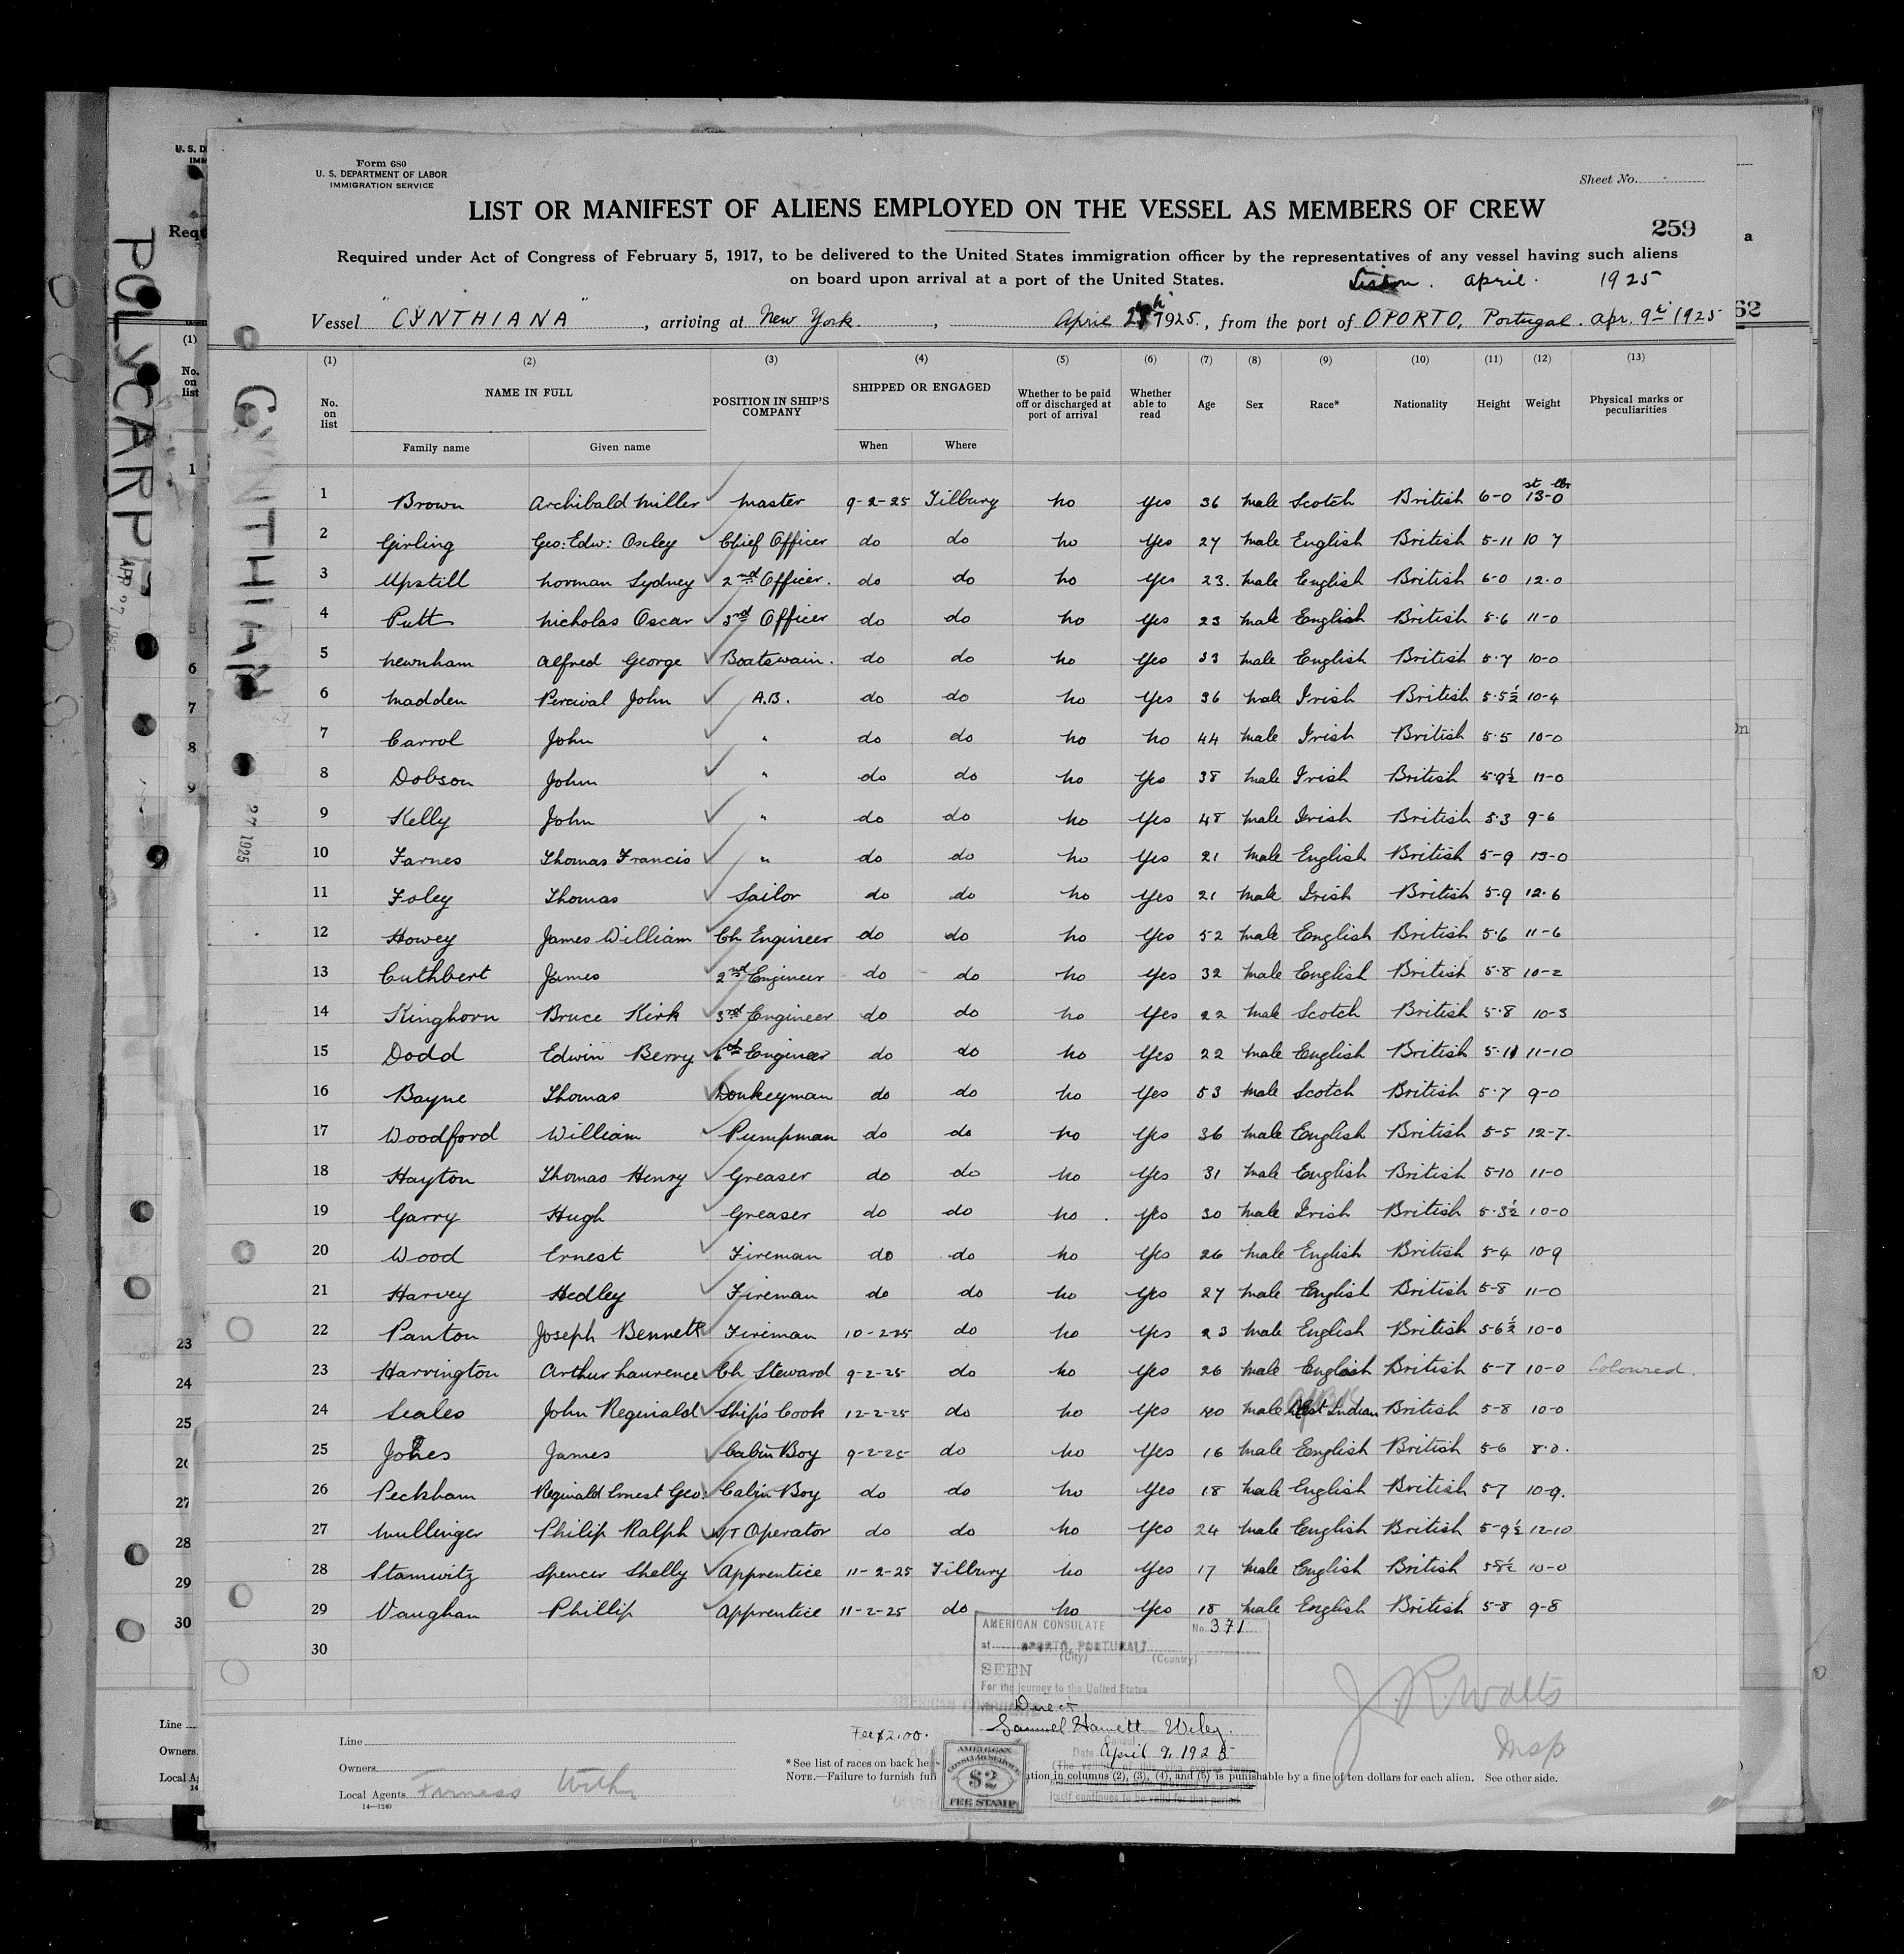 Form 680
U. S. DEPARTMENT OF LABOR
IMMIGRATION SERVICE
Sheet No.
LIST OR MANIFEST OF ALIENS EMPLOYED ON THE VESSEL AS MEMBERS OF CREW
259
Required under Act of Congress of February 5, 1917, to be delivered to the United States immigration officer by the representatives of any vessel having such aliens
on board upon arrival at a port of the United States. Lisbon. April. 1925
Vessel "CYNTHIANA", arriving at New York, April 1925, from the port of OPORTO, Portugal. Apr. 9th 1925
(1) (2) (3) (4) (5) (6) (7) (8) (9) (10) (11) (12) (13)
No. on list NAME IN FULL POSITION IN SHIP'S COMPANY SHIPPED OR ENGAGED Whether to be paid off or discharged at port of arrival Whether able to read Age Sex Race* Nationality Height Weight Physical marks or peculiarities
Family name Given name When Where
st lbs
1 Brown Archibald Miller Master 9-2-25 Tilbury No Yes 36 Male Scotch British 6-0 13-0
2 Girling Geo: Edw: Oxley Chief Officer do do No Yes 27 Male English British 5-11 10 7
3 Upstill Norman Sydney 2nd Officer. do do No Yes 23. Male English British 6-0 12.0
4 Putt Nicholas Oscar 3rd Officer do do No Yes 23 Male English British 5.6 11-0
5 Newnham Alfred George Boatswain. do do No Yes 33 Male English British 5.7 10-0
6 Madden Percival John A.B. do do No Yes 36 Male Irish British 5.5½ 10-4
7 Carrol John " do do No No 44 Male Irish British 5.5 10-0
8 Dobson John " do do No Yes 38 Male Irish British 5.9½ 11-0
9 Kelly John " do do No Yes 48 Male Irish British 5.3 9-6
10 Farnes Thomas Francis " do do No Yes 21 Male English British 5-9 13-0
11 Foley Thomas Sailor do do No Yes 21 Male Irish British 5.9 12.6
12 Howey James William Ch Engineer do do No Yes 52 Male English British 5.6 11-6
13 Cuthbert James 2nd Engineer do do No Yes 32 Male English British 5.8 10-2
14 Kinghorn Bruce Kirk 3rd Engineer do do No Yes 22 Male Scotch British 5.8 10-3
15 Dodd Edwin Berry Engineer do do No Yes 22 Male English British 5-11 11-10
16 Bayne Thomas Donkeyman do do No Yes 53 Male Scotch British 5.7 9-0
17 Woodford William Pumpman do do No Yes 36 Male English British 5-5 12-7.
18 Hayton Thomas Henry Greaser do do No Yes 31 Male English British 5-10 11-0
19 Garry Hugh Greaser do do No Yes 30 Male Irish British 5.3½ 10-0
20 Wood Ernest Fireman do do No Yes 26 Male English British 5-4 10-9
21 Harvey Hedley Fireman do do No Yes 27 Male English British 5-8 11-0
22 Panton Joseph Bennett Fireman 10-2-25 do No Yes 23 Male English British 5-6½ 10-0
23 Harrington Arthur Laurence Ch Steward 9-2-25 do No Yes 26 Male English British 5-7 10-0 Coloured.
24 Seales John Reginald Ship's Cook 12-2-25 do No Yes Male West Indian British 5-8 10-0
25 Jones James Cabin Boy 9-2-25 do No Yes 16 Male English British 5-6 8.0.
26 Peckham Reginald Ernest Geo: Cabin Boy do do No Yes 18 Male English British 57 10-9.
27 Mullinger Philip Ralph W/T Operator do do No Yes 24 Male English British 5-9½ 12-10
28 Stamwitz Spencer Shelly Apprentice 11-2-25 Tilbury No Yes 17 Male English British 5 8½ 10-0
29 Vaughan Phillip Apprentice 11-2-25 do No Yes 18 Male English British 5-8 9-8
30
AMERICAN CONSULATE No. 371
at OPORTO, PORTUGAL
(City) (Country)
SEEN
For the journey to the United States
Direct
Samuel Hamett Wiley.
Consul
Date April 9, 1925
Fee $2.00.
AMERICAN CONSULAR SERVICE
$2
FEE STAMP
itself continues to be valid for that period.
J. R. Watts
Insp
Line
Owners
Local Agents Furness Withy
14—1240
*See list of races on back he
NOTE.—Failure to furnish full ation in columns (2), (3), (4), and (5) is punishable by a fine of ten dollars for each alien. See other side.
CYNTHIAN
27 1925
POLYCARP
APR 27
U. S. D
IMM
Requ
(1)
No. on list
1
6
7
8
9
23
24
25
26
27
28
29
30
Line
Owners
Local A
14
a
62